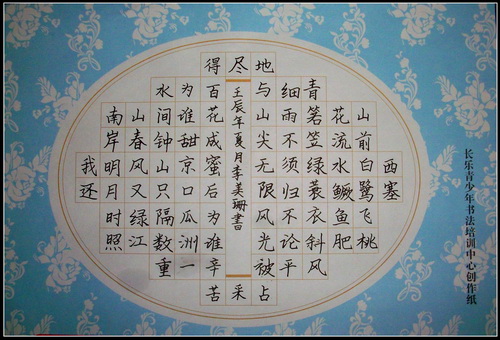 西塞
山前白鹭飞桃
花流水鳜鱼肥
青箬笠绿蓑衣斜风
细雨不须归不论平
地与山尖无限风光被占
尽
壬辰年夏月李美珊書
采
得百花成蜜后为谁辛苦
为谁甜京口瓜洲一
水间钟山只隔数重
山春风又绿江
南岸明月时照
我还
长乐青少年书法培训中心创作纸